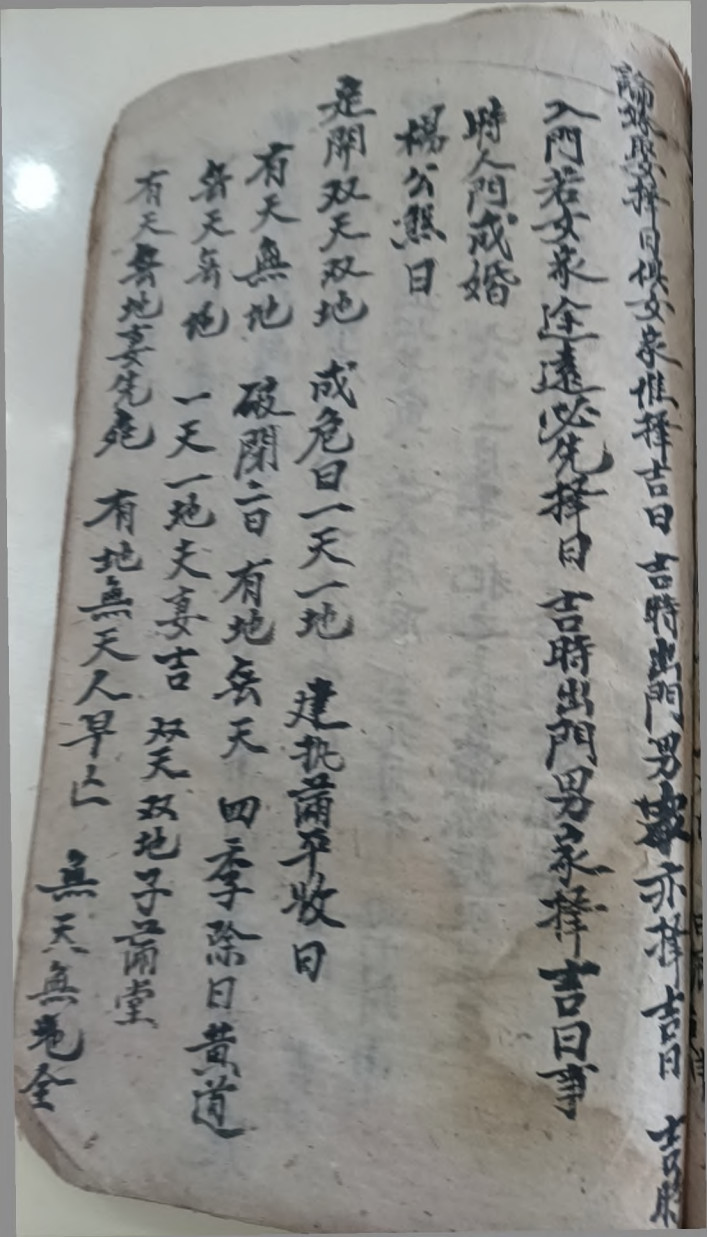 論嫁娶择日俱女家惟择吉日 吉時出門男家亦择吉日 吉時
入門若女家途遠必先择日 吉時出門男家择吉日事
時人門成婚
楊公熬日
是開双天双地 成危日一天一地 建执満平收日
有天無地 破閉二日 有地无天 四季除日黄道
无天无地 一天一地夫妻吉 双天双地子満堂
有天無地妻先死 有地無天人早亡 無天無地全